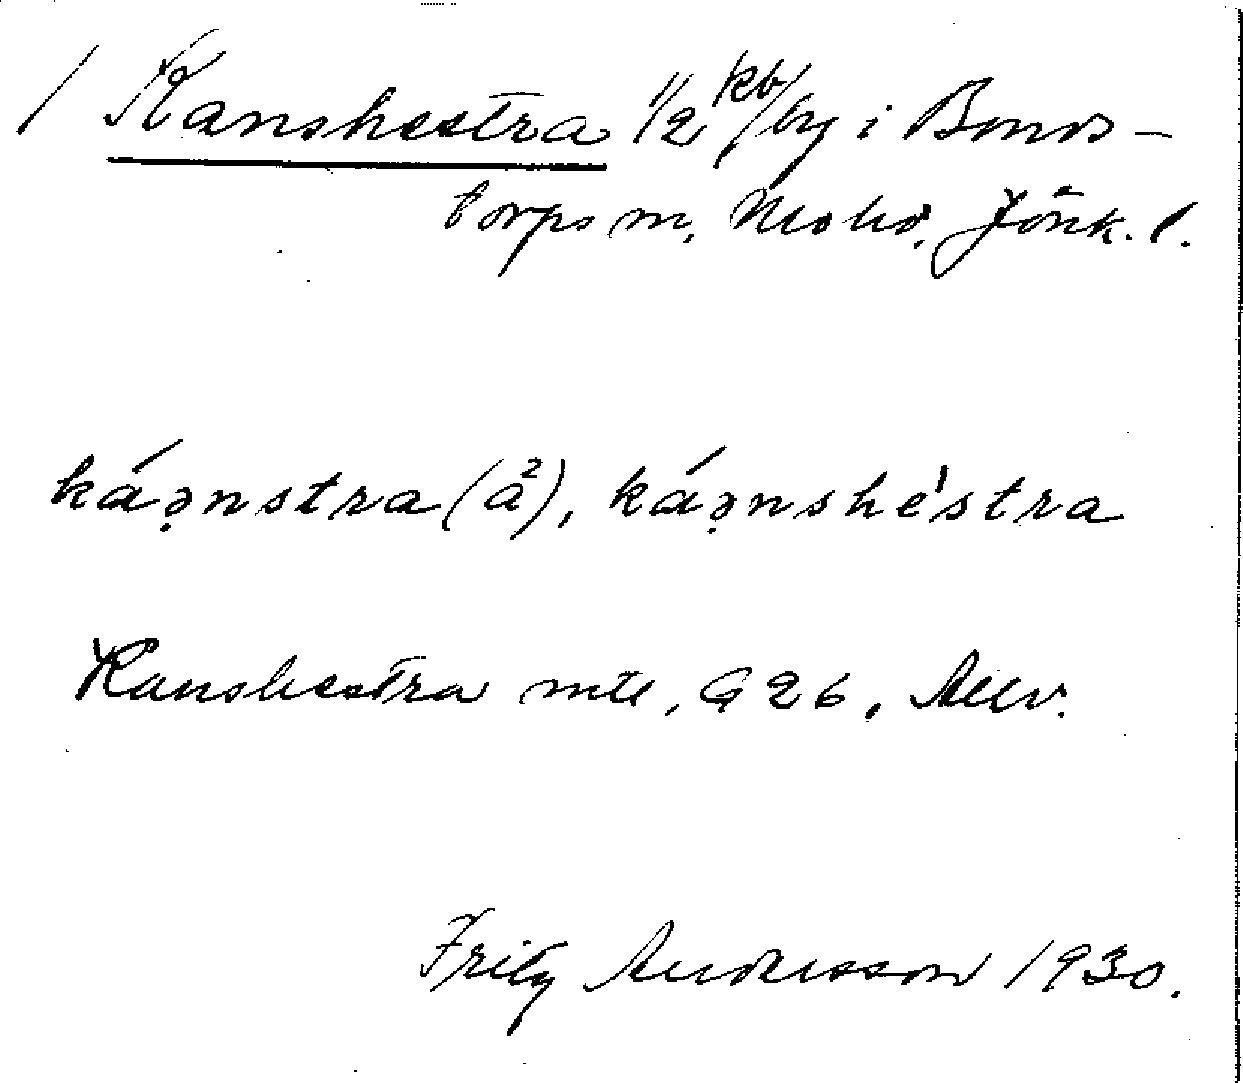 / Kanshestra 1/2 kb/by i Bonds-
torps sn, Mo hd, Jönk. l.
káǫnstra (a²), káǫnshèstra
Kanshestra mtl, G 26,
Fritz Andersson 1930.